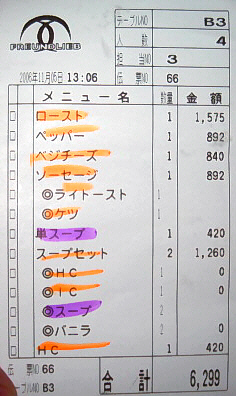 FREUNDLIEB
テーブルNO B3
人数 4
担当NO 3
2006年11月05日 13:06 伝票NO 66
メニュー名 数量 金額
ロースト 1 1,575
ペッパー 1 892
ベジチーズ 1 840
ソーセージ 1 892
◎ライトースト 1
◎ケツ 1
単スープ 1 420
スープセット 2 1,260
◎HC 1 0
◎IC 1 0
◎スープ 2
◎バニラ 2 0
HC 1 420
伝票NO 66
テーブルNO B3
合計 6,299